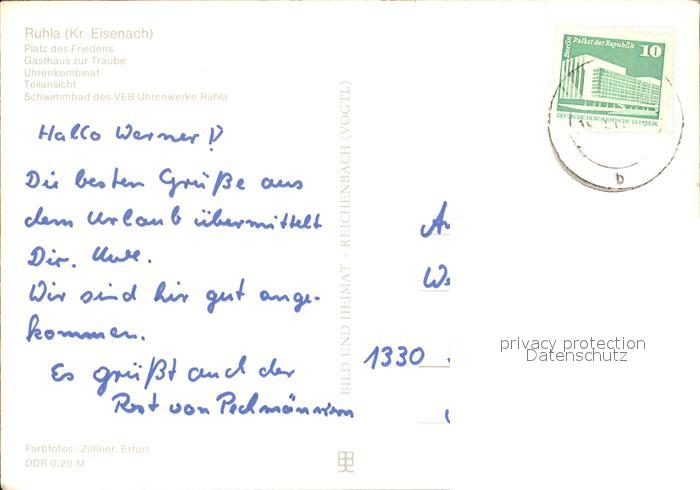 Ruhla (Kr. Eisenach)
Platz des Friedens
Gasthaus zur Traube
Uhrenkombinat
Teilansicht
Schwimmbad des VEB Uhrenwerke Ruhla
Hallo Werner!
Die besten Grüße aus
dem Urlaub übermittelt
Dir. Uwe.
Wir sind hir gut ange-
kommen.
Es grüßt auch der
Rest von
Farbfotos: Zöllner, Erfurt
DDR 0,20 M
BILD UND HEIMAT · REICHENBACH (VOGTL)
Berlin Palast der Republik 10
DEUTSCHE DEMOKRATISCHE REPUBLIK
b
An
We
1330
privacy protection
Datenschutz